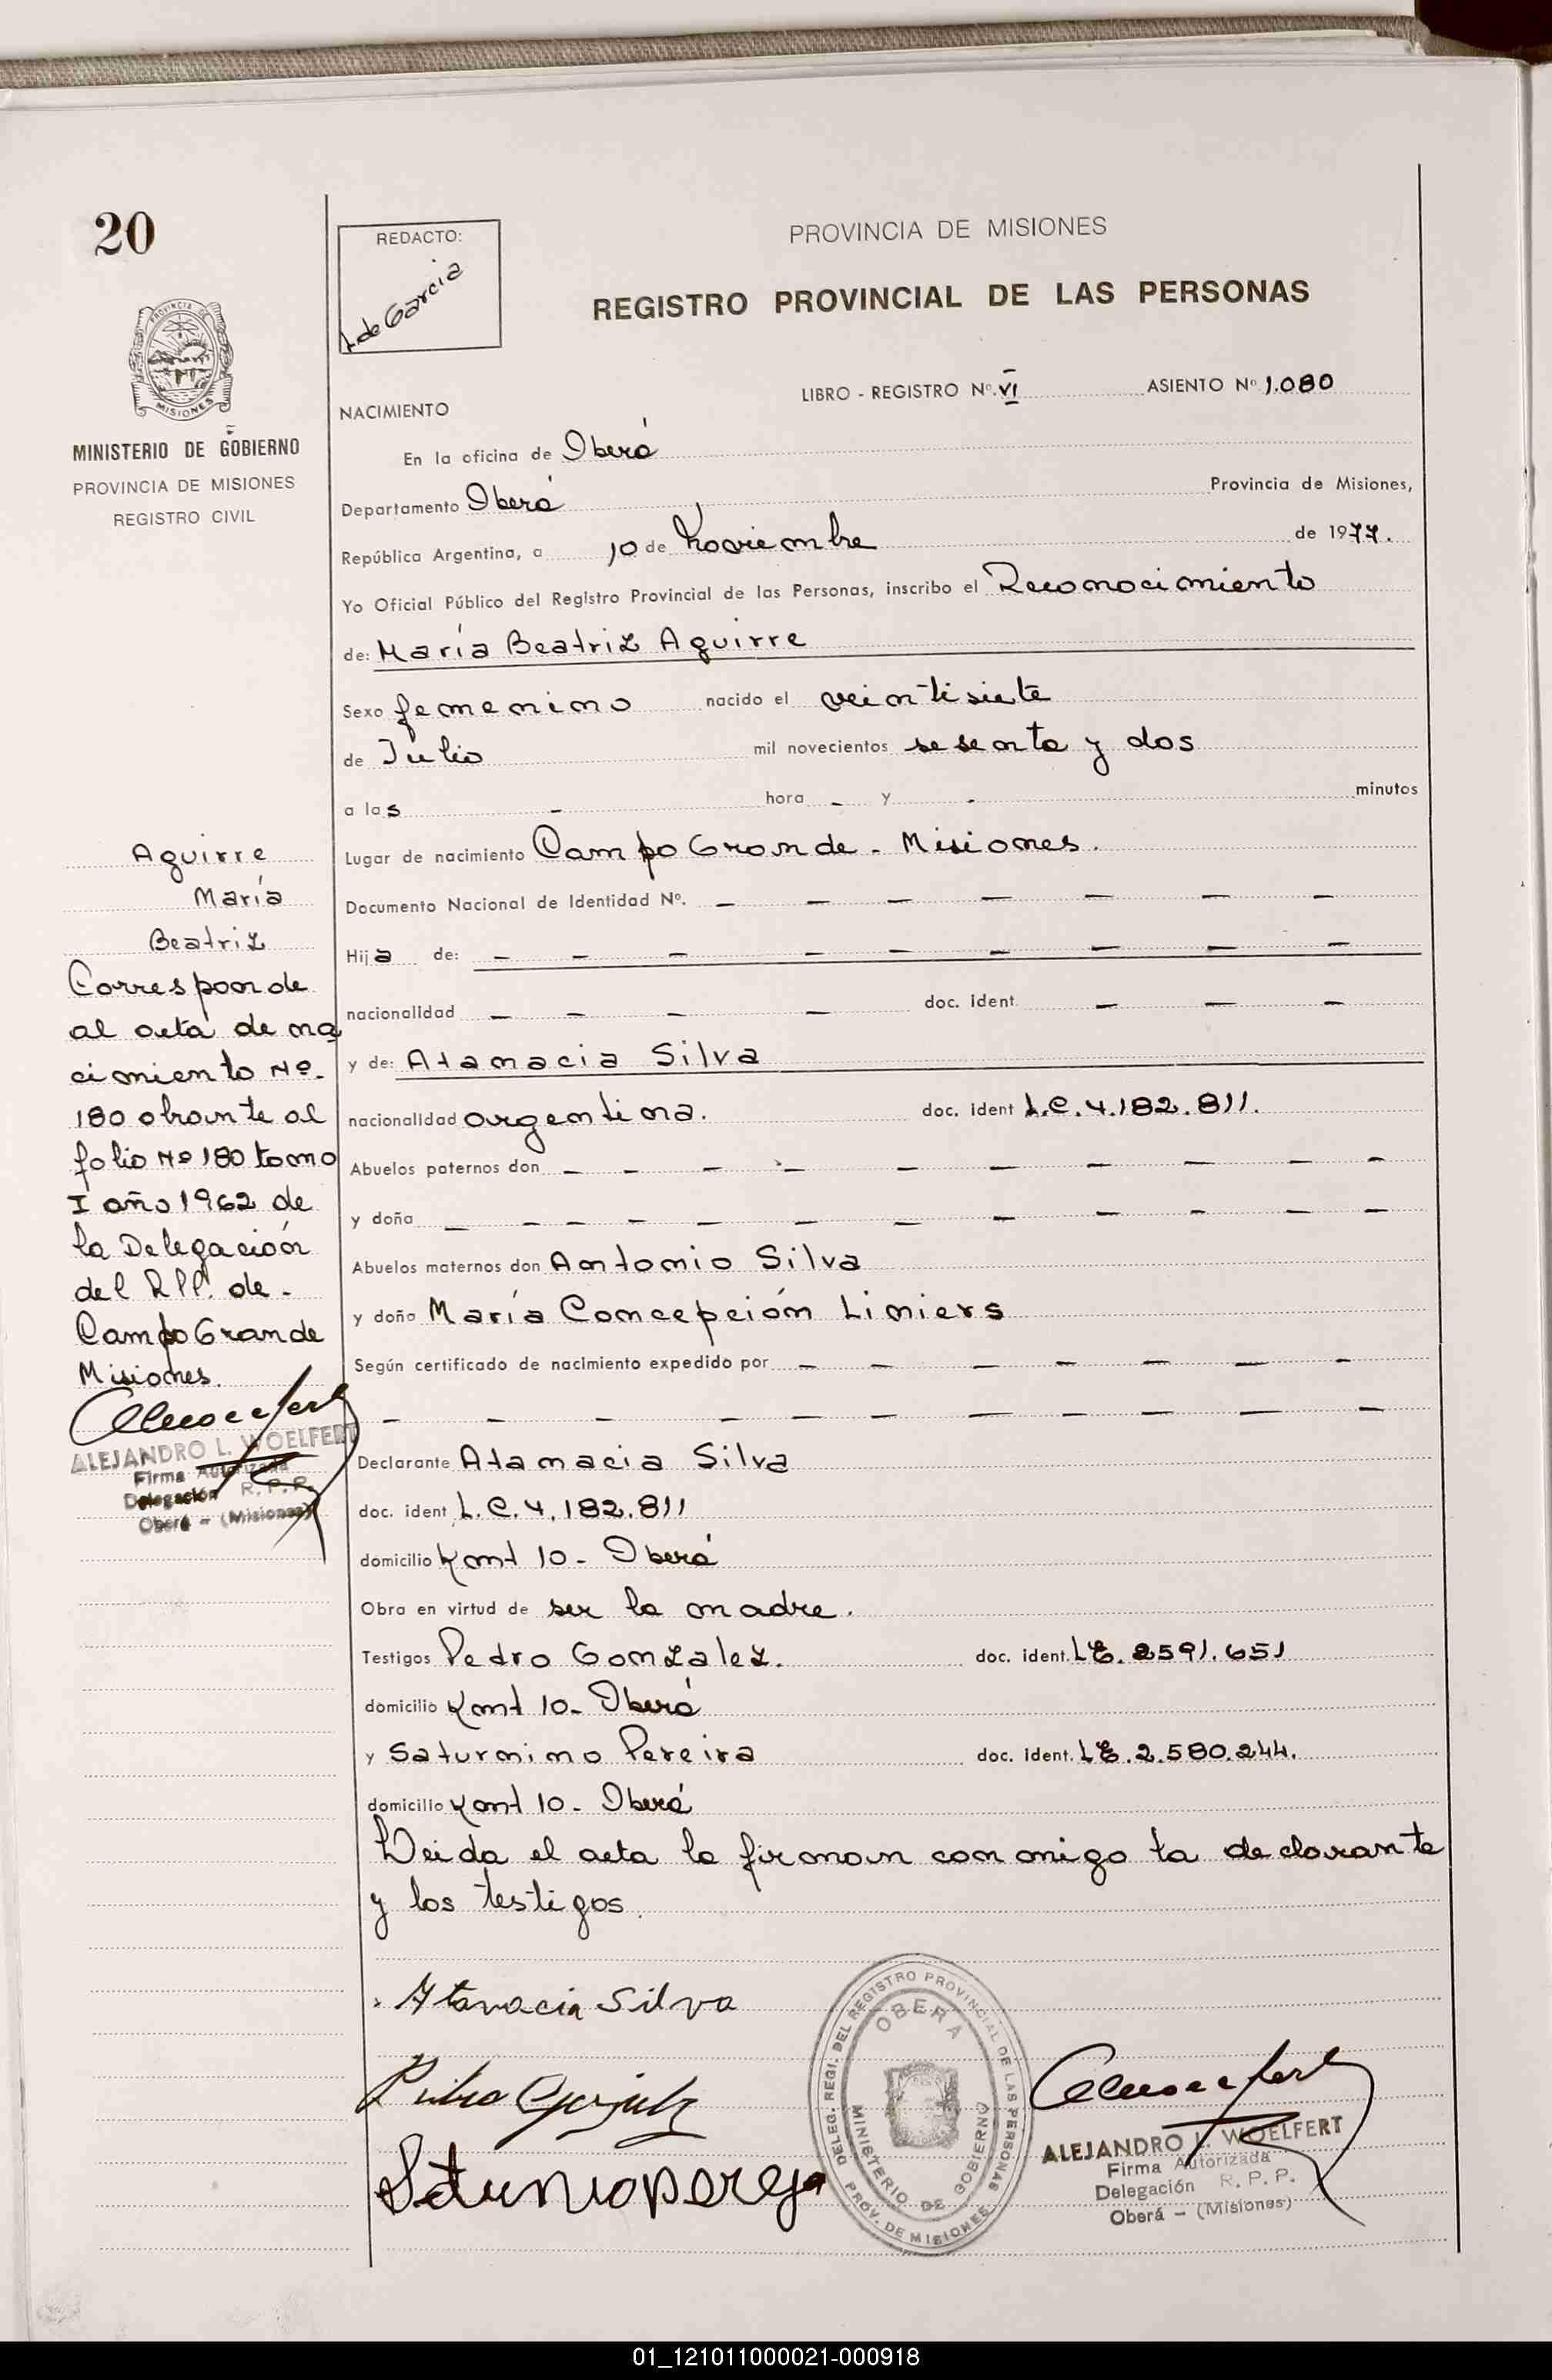 20
REDACTO:
L de Garcia
PROVINCIA DE MISIONES
REGISTRO PROVINCIAL DE LAS PERSONAS
PROVINCIA DE
MISIONES
MINISTERIO DE GOBIERNO
PROVINCIA DE MISIONES
REGISTRO CIVIL
LIBRO - REGISTRO Nº. VI ASIENTO Nº 1.080
NACIMIENTO
En la oficina de Oberá
Departamento Oberá Provincia de Misiones,
República Argentina, a 10 de Noviembre de 1977.
Yo Oficial Público del Registro Provincial de las Personas, inscribo el Reconocimiento
de: María Beatriz Aguirre
Sexo femenino nacido el veintisiete
de Julio mil novecientos sesenta y dos
a las - hora - y - minutos
Lugar de nacimiento Campo Grande - Misiones.
Documento Nacional de Identidad Nº. — — — — — — —
Hija de: — — — — — — — —
nacionalidad — — — — doc. ident. — — —
y de: Atanacia Silva
nacionalidad argentina. doc. ident L.C. 4.182.811.
Abuelos paternos don — — — — — — — — — —
y doña — — — — — — — — — — — —
Abuelos maternos don Antonio Silva
y doña María Concepción Liniers
Según certificado de nacimiento expedido por — — — — — — —
— — — — — — — — — — —
Declarante Atanacia Silva
doc. ident L.C. 4.182.811
domicilio Kmt 10 - Oberá
Obra en virtud de ser la madre.
Testigos Pedro Gonzalez. doc. ident. LE. 2591.651
domicilio Kmt 10 - Oberá
y Saturnino Pereira doc. ident. LE. 2.580.244.
domicilio Kmt 10 - Oberá
Leida el acta la firman conmigo la declarante
y los testigos.
Aguirre
María
Beatriz
Corresponde
al acta de na
cimiento Nº-
180 obrante al
folio Nº 180 tomo
I año 1962 de
la Delegación
del RPP. de -
Campo Grande
Misiones.
ALEJANDRO L. WOELFERT
Firma Autorizada
Delegación R. P. P.
Oberá - (Misiones)
Atanacia Silva
Pedro Gonzalez
DELEG. REGI. DEL REGISTRO PROVINCIAL DE LAS PERSONAS
PROV. DE MISIONES
OBERA
MINISTERIO DE GOBIERNO
ALEJANDRO L. WOELFERT
Firma Autorizada
Delegación R. P. P.
Oberá - (Misiones)
01_121011000021-000918